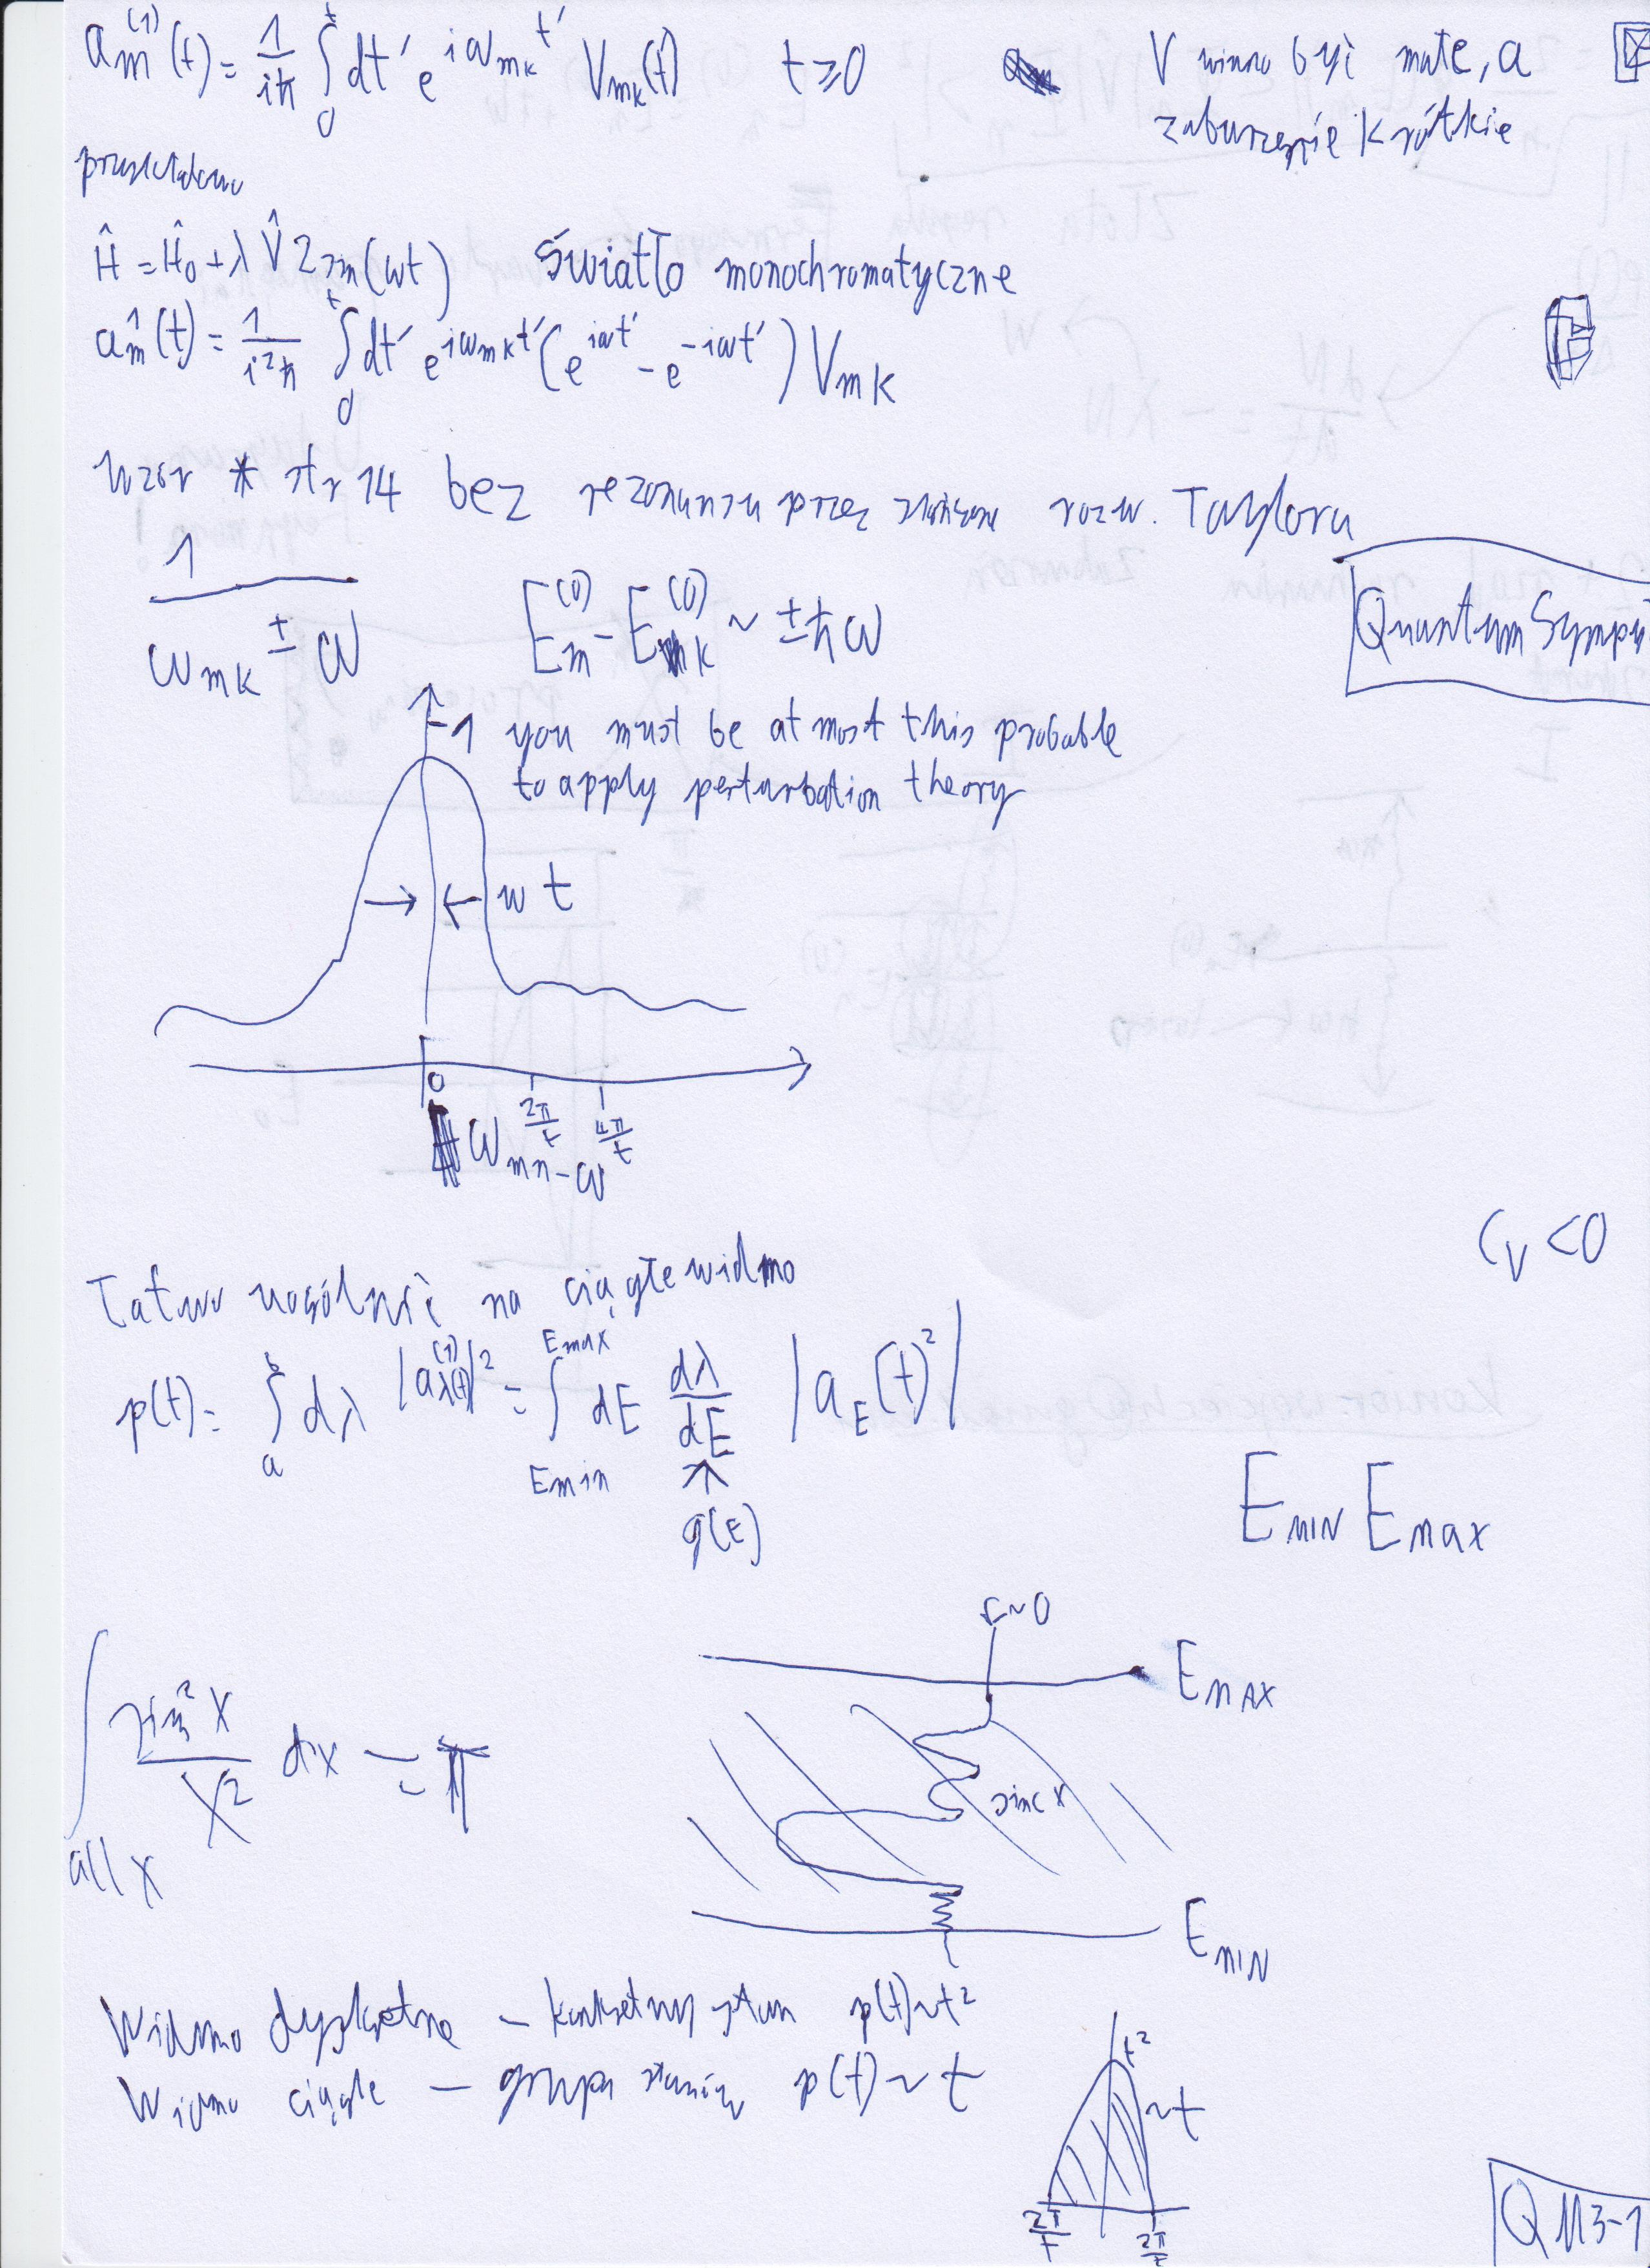 a_m^(1)(t) = 1/iħ ∫_0^t dt' e^{iω_mk t'} V_mk(t) t ≥ 0
V winno być małe, a
zaburzenie krótkie
Ĥ = Ĥ_0 + λ V̂ 2 sin(ωt) światło monochromatyczne
a_m^1(t) = 1/i²ħ ∫_0^t dt' e^{iω_mk t'} (e^{iωt'} - e^{-iωt'}) V_mk
wzór * str 14 bez rezonansu przez rozw. Taylora
1/(ω_mk ± ω) E_m^(0) - E_k^(0) ~ ±ħω
Quantum Symp
1 you must be at most this probable
to apply perturbation theory
w t
0 2π/t 4π/t
ω_mn - ω
C_V < 0
Łatwo uogólnić na ciągłe widmo
p(t) = ∫_a^b dλ |a_λ^(1)(t)|² = ∫_Emin^Emax dE dλ/dE |a_E(t)²|
g(E)
E_MIN E_max
~0
E_MAX
∫_all x sin²x/x² dx = π
sinc x
E_MIN
Widmo dyskretne – konkretny stan p(t) ~ t²
Widmo ciągłe – grupa stanów p(t) ~ t
t²
~t
2π/t 2π/t
QM3-1